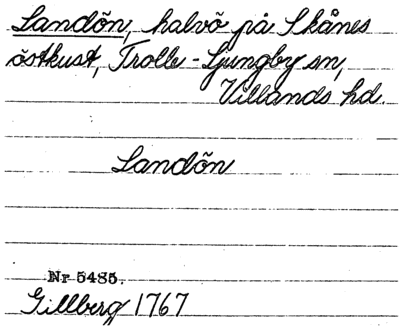 Landön, halvö på Skånes
östkust, Trolle-Ljungby sn,
Villands hd.
Landön
Nr 5485.
Gillberg 1767